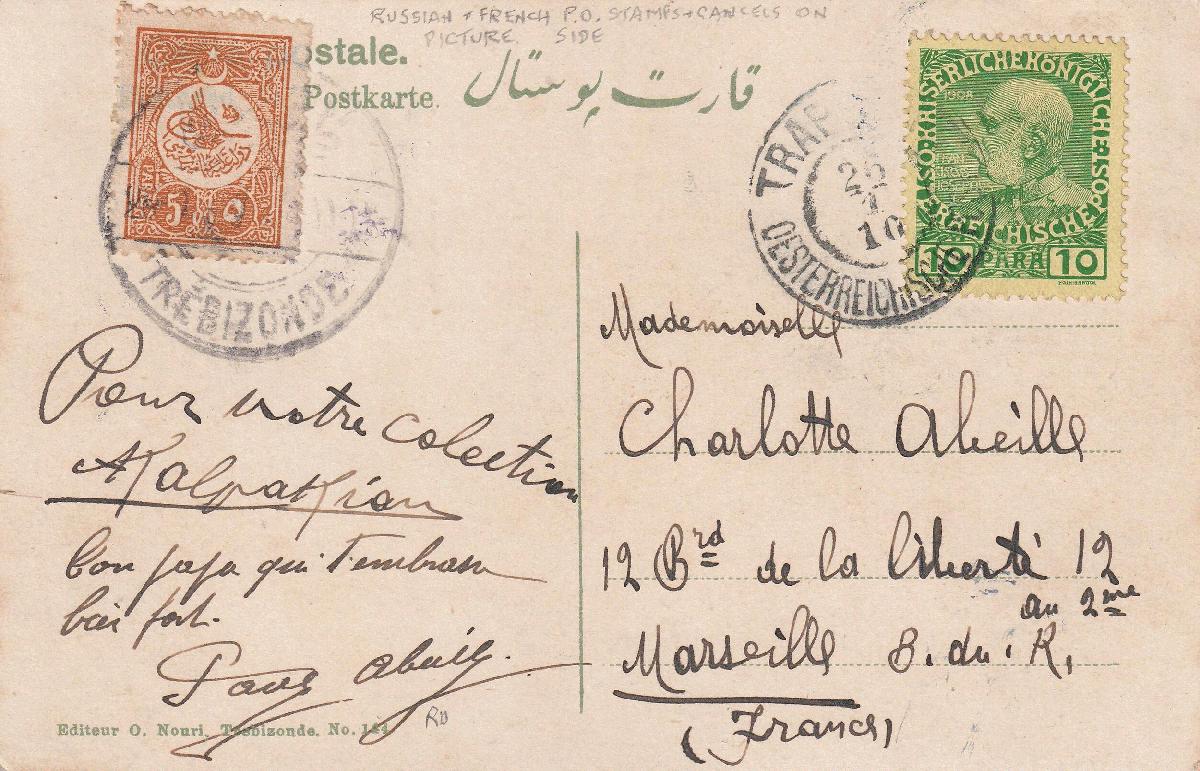 RUSSIAN + FRENCH P.O. STAMPS + CANCELS ON
PICTURE SIDE
ostale.
Postkarte.
قارت پوستال
5 ٥
PARA
TRÉBIZONDE
TRAP
26
10
OESTERREICHISCHE
KAISERLICHE KÖNIGLICHE
ÖSTERREICHISCHE POST
1908
10 PARA 10
Pour votre colection
AKalpakian
bon papa qui t'embrasse
bien fort.
Paul Abeille.
Editeur O. Nouri, Trebizonde. No. 124
Mademoiselle
Charlotte Abeille
12 Brd de la liberté 12
au 2me
Marseille B. du. R.
(France)